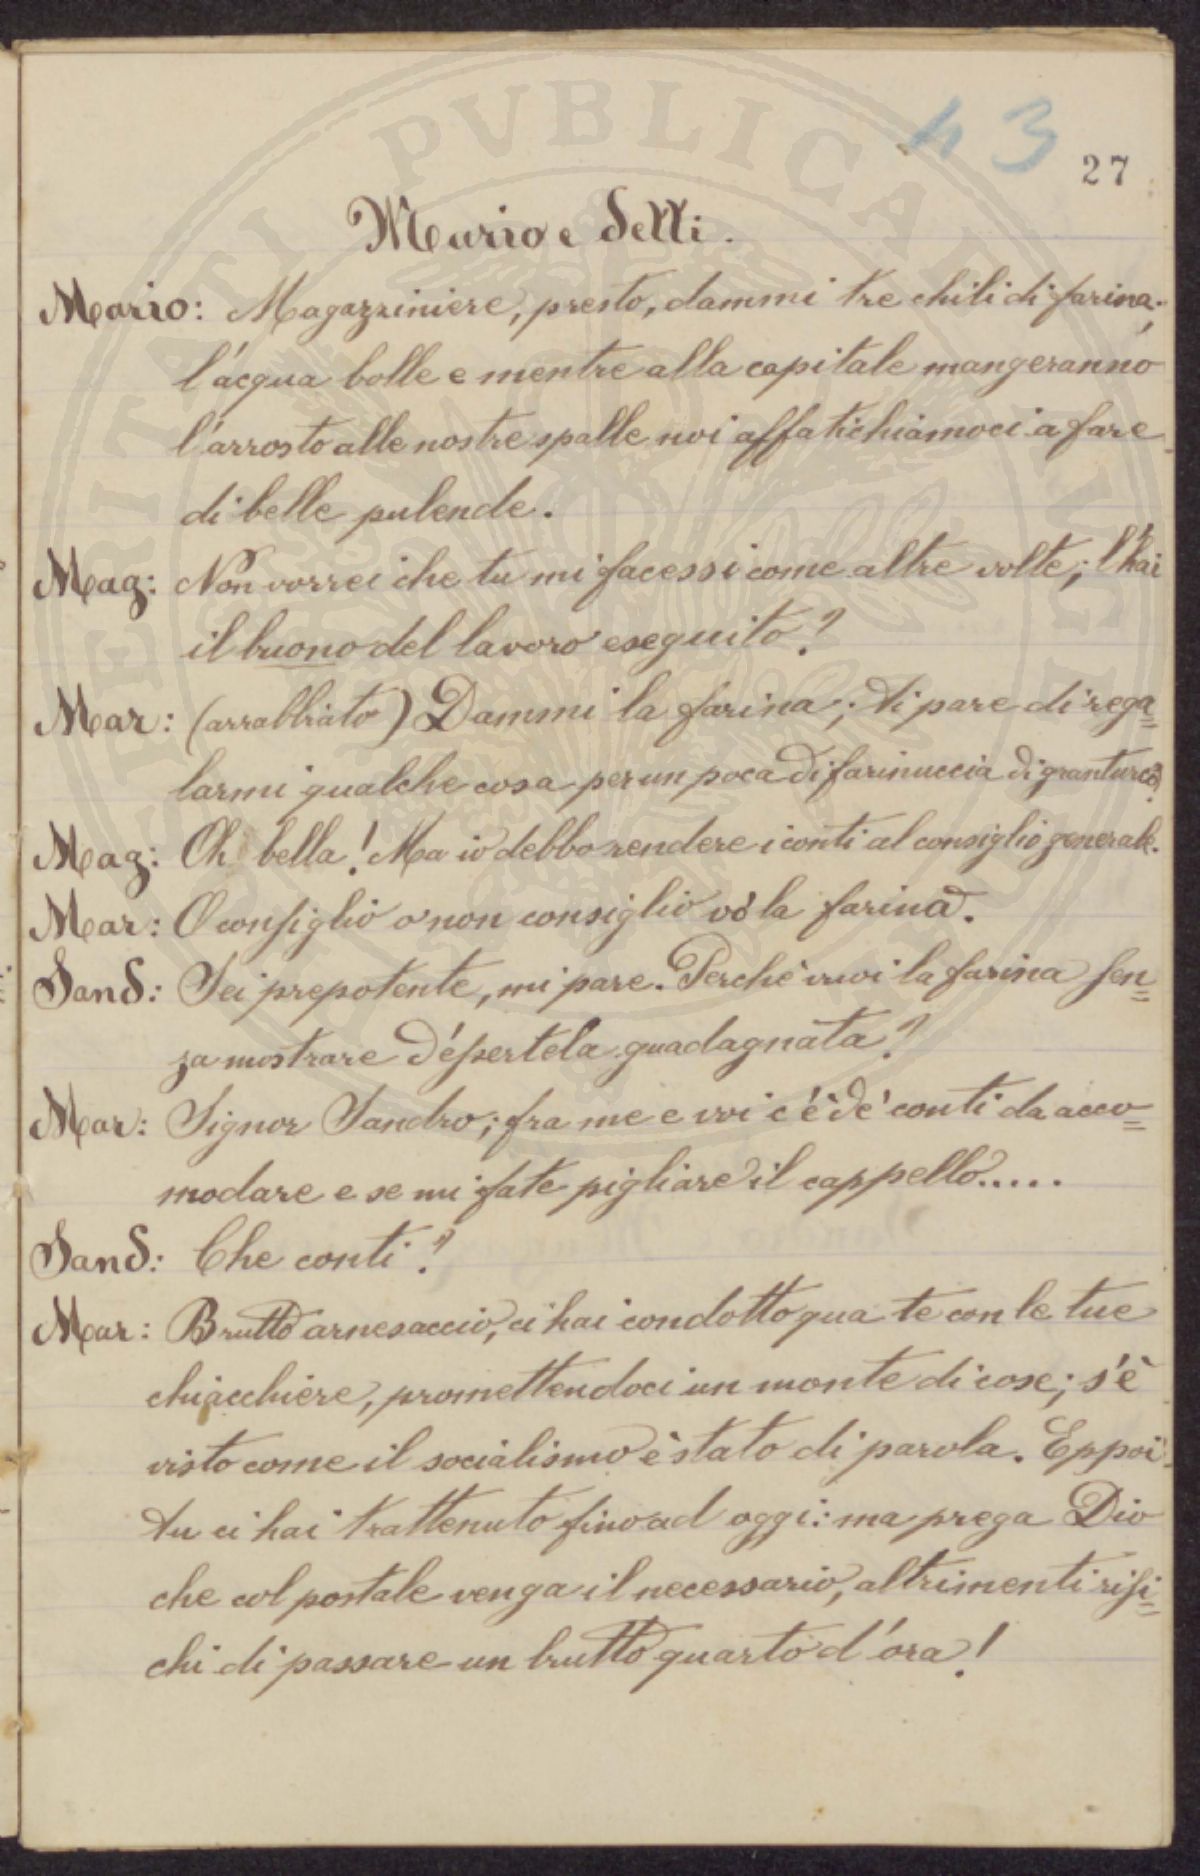 PVBLICAE
VERITATI
43
27
Mario e detti.
Mario: Magazziniere, presto, dammi tre chili di farina;
l'acqua bolle e mentre alla capitale mangeranno
l'arrosto alle nostre spalle noi affatichiamoci a fare
di belle pulende.
Mag: Non vorrei che tu mi facessi come altre volte; l'hai
il buono del lavoro eseguito?
Mar: (arrabbiato) Dammi la farina; ti pare di rega=
larmi qualche cosa per un poca di farinuccia di granturco?
Mag: Oh bella! Ma io debbo rendere i conti al consiglio generale.
Mar: O consiglio o non consiglio vò la farina.
Sand: Sei prepotente, mi pare. Perchè vuoi la farina sen=
za mostrare d'essertela guadagnata?
Mar: Signor Sandro; fra me e voi c'è de' conti da acco=
modare e se mi fate pigliare il cappello.....
Sand: Che conti?
Mar: Brutto arnesaccio, ci hai condotto qua te con le tue
chiacchiere, promettendoci un monte di cose; s'è
visto come il socialismo è stato di parola. Eppoi
tu ci hai trattenuto fino ad oggi: ma prega Dio
che col postale venga il necessario, altrimenti risi=
chi di passare un brutto quarto d'ora!